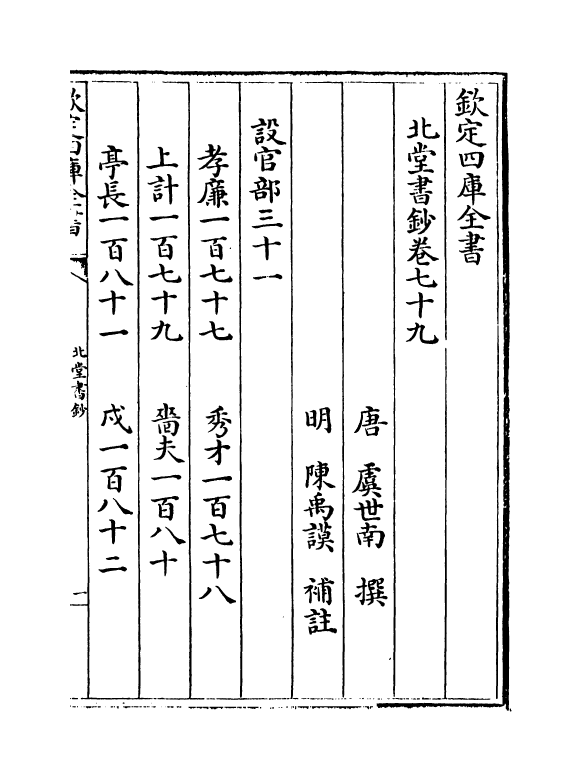 欽定四庫全書
北堂書鈔卷七十九
唐　虞世南　撰
明　陳禹謨　補註
設官部三十一
孝廉一百七十七　秀才一百七十八
上計一百七十九　嗇夫一百八十
亭長一百八十一　戍一百八十二
欽定四庫全書
北堂書鈔